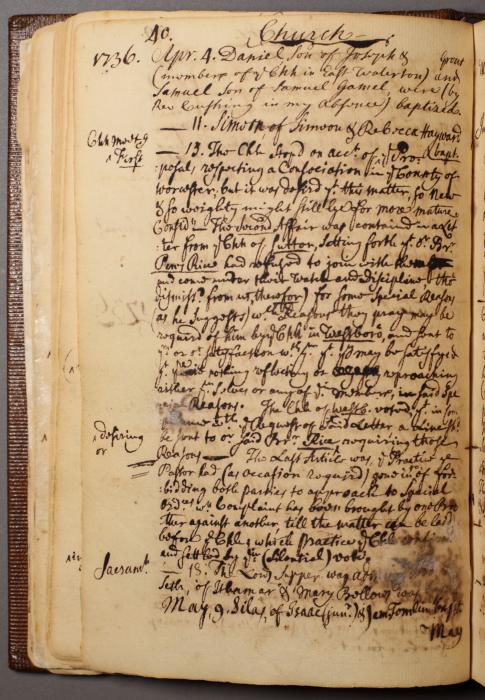 40. Church
1736. Apr. 4. Daniel Son of Joseph & Grout
(members of ye Chh in East Waterton) and
Samuel Son of Samuel Gamel were (by
Rev Cushing in my absence) baptized.
— 11. Simeon of Simeon & Rebecca Hayward bapt.
Chh Meetg
— 13. The Chh Stopd on acct of ye Pro-
posals respecting a Consociation in ye County of
Worcester, but it was desird yt this matter, so New
& so weighty might still lye for more mature
Considn. The Second Affair was containd in a Let-
ter from ye Chh of Sutton, setting forth yt or Br.
Rice had refused to join with them
and come under their Watch and Discipline (tho
dismissd from us, therefor) for some Special Reason
(as he Suggests) wch Reasons they pray may be
requird of him by ye Chh in Westboro, and sent to
ym or or Satisfaction wth ym yt yo may be Satisfyed
nothing reflecting or reproaching
either ym selves or any of ye Members, in said Spe-
Reasons. The Chh of Westb. voted yt in
ye Request of sd Letter a Line shd
desiring
or
be sent to or said Br. Rice requiring those
Reasons — The Last Article was, ye Practice ye
Pastor had (as occasion requird) gone in of for-
bidding both parties to approach to Special
Ordces wn Complaint has been brought by one Bro-
ther against another, till the matter can be laid
before ye Chh; which Practice ye Chh
and settled by yir (Silential) vote.
Sacramt.
— 18. The Lords Supper was
Seth, of Ithamar & Mary Bellows was
May, 9. Silas, of Isaac (junr.) & Tomlin bapt
May